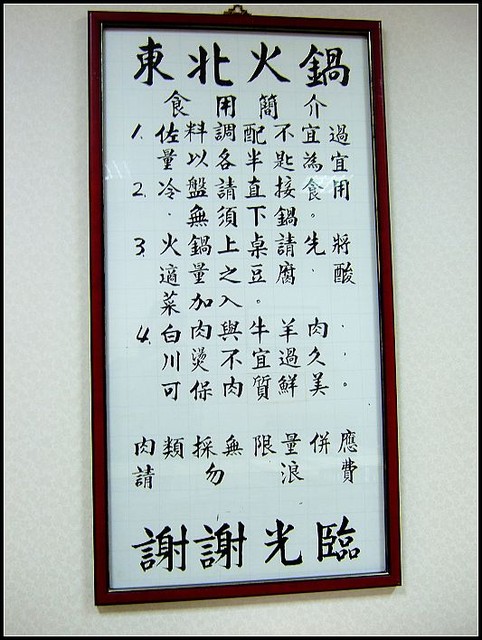 東北火鍋
食用簡介
1. 佐料調配不宜過
量以各半匙為宜
2. 冷盤請直接食用
.無須下鍋。
3. 火鍋上桌請先將
適量之豆腐.酸
菜加入。
4. 白肉與牛羊肉.
川燙不宜過久.
可保肉質鮮美。
肉類採無限量供應
請勿浪費
謝謝光臨